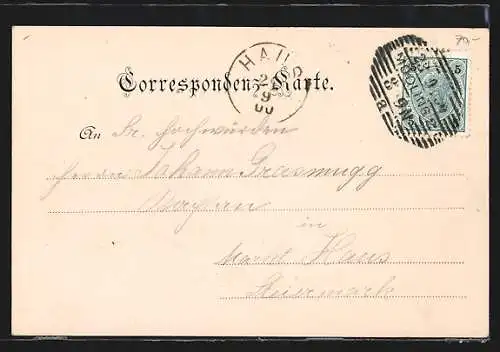 70,-
HAU
24
9
00
5
Correspondenz-Karte.
An Sr. Hochwürden
Herrn Johann Grasmugg
Kaplan
in
Markt Haus
Steiermark